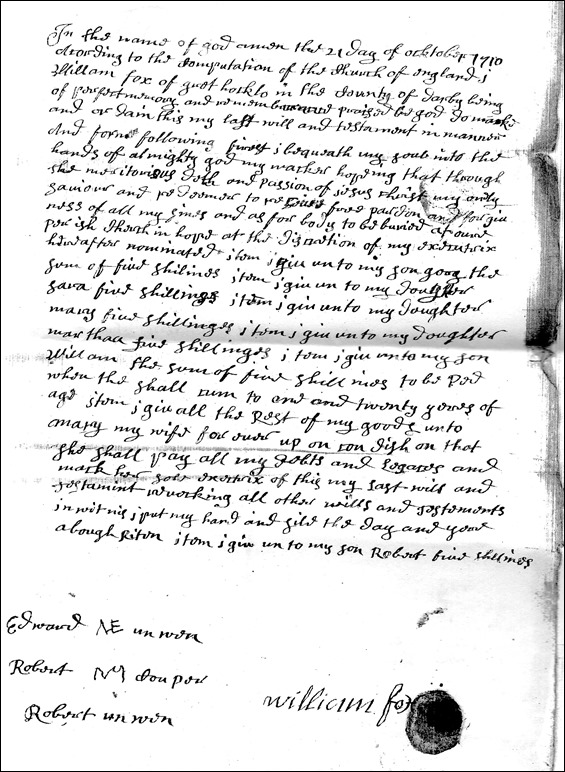 In the name of god amen the 21 day of ocktober 1710
Acording to the Computation of the Church of england j
William fox of guet hocklo in the County of darby being
of perfect memory and remembrance praised be god do make
and or dain this my last will and testament in manner
And form following first j bequeath my soul into the
hands of almighty god my macker hoping that through
the meritorious deth and passion of jesus Christ my only
saviour and redeemer to receive free pardon and forgiv
ness of all my sines and as for body to be buried at oure
perish Church in hope at the discretion of my executrix
hereafter nominated item j giv unto my son gorg the
sum of five shilines item j giv un to my doughter
sara five shillings item j giv unto my doughter
mary five shillinges j tem j giv unto my doughter
marthaa five shillinges j tem j giv unto my son
William the sum of five shill ines to be Ped
when the shall cum to one and twenty yeres of
age item j giv all the Rest of my goods unto
mary my wife for ever up on con dish on that
she shall pay all my debts and legaces and
mack her sole exetrix of this my last will and
testamint revocking all other wills and testements
in wit nis j put my hand and sile the day and yere
a bough riten item j giv un to my son Robert five shilines
Edward NE un wen
Robert Couper
Robert un wen
william fox